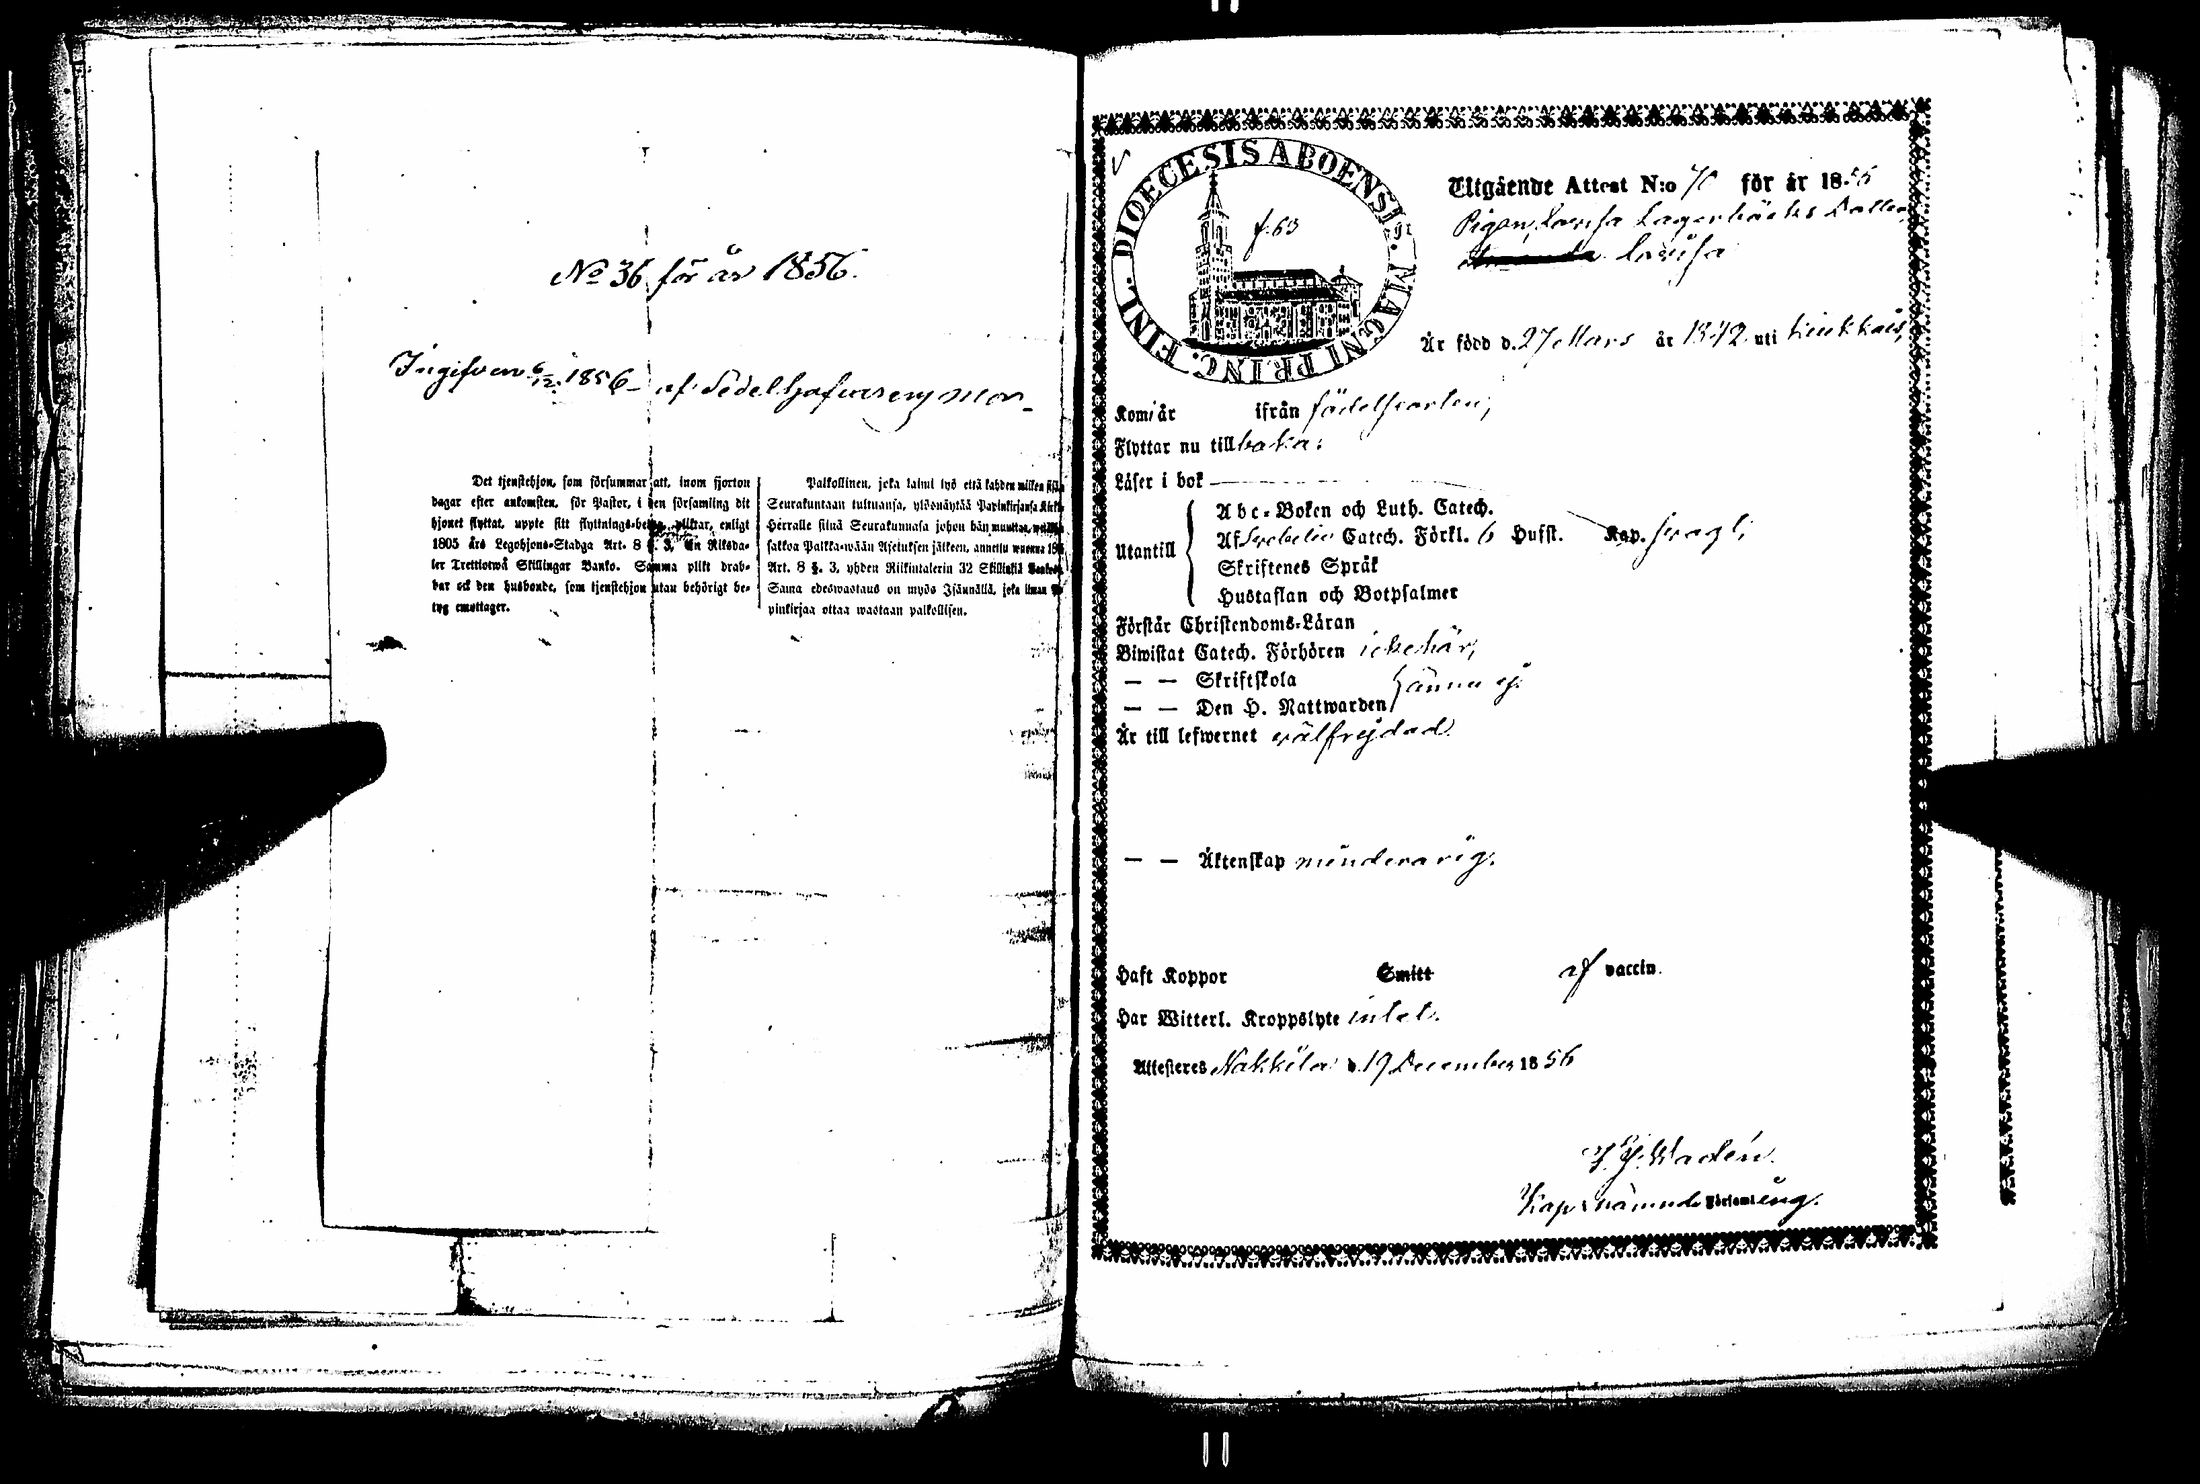 No 36 för år 1856.
Ingifven 1856 af Sedelhafverens Mor
Det tjenstehjon, som försummar att, inom fjorton
dagar efter ankomsten, för Pastor, i den församling dit
hjonet flyttat, uppte sitt flyttnings-betyg, pliktar, enligt
1805 års Legohjons-Stadga Art. 8 §. 3, En Riksda-
ler Trettiotwå Skillingar Banko. Samma plikt drab-
bar ock den husbonde, som tjenstehjon utan behörigt be-
tyg emottager.
Palkollinen, joka laimi lyö että kahden wiikon sisällä
Seurakuntaan tultuansa, ylösnäyttää Papinkirjansa Kirkko-
Herralle siinä Seurakunnasa johon hän muuttaa,
sakkoa Palkka-wään Asetuksen jälkeen, annettu wuonna 1805
Art. 8 §. 3, yhden Riikintalerin 32 Skillinkiä Bankosa.
Sama edeswastaus on myös Isännällä, joka ilman Pa-
pinkirjaa ottaa wastaan palkollisen.
DIOECESIS ABOENSIS. MAGNI PRINC. FINL.
f. 63
Utgående Attest N:o 70 för år 1856
Pigan Lovisa Lagerbäcks Dotter
Lovisa
Är född d. 27 Mars år 1842 uti Kiukkais,
Kom år ifrån födelseorten,
Flyttar nu tillbaka.
Läser i bok
Utantill
Abc-Boken och Luth. Catech.
Af Svebelii Catech. Förkl. 6 Hufst. Kap. svagt;
Skriftenes Språk
Hustaflan och Botpsalmer
Förstår Christendoms-Läran
Biwistat Catech. Förhören icke här,
— — Skriftskola
— — Den H. Nattwarden ännu ej.
Är till lefwernet välfrejdad.
— — Äktenskap minderårig.
Haft Koppor Smitt af vaccin.
Har Witterl. Kroppslyte intet.
Attesteres Nakkila d. 19 December 1856
Wadén.
Kap. i nämnde Församling.